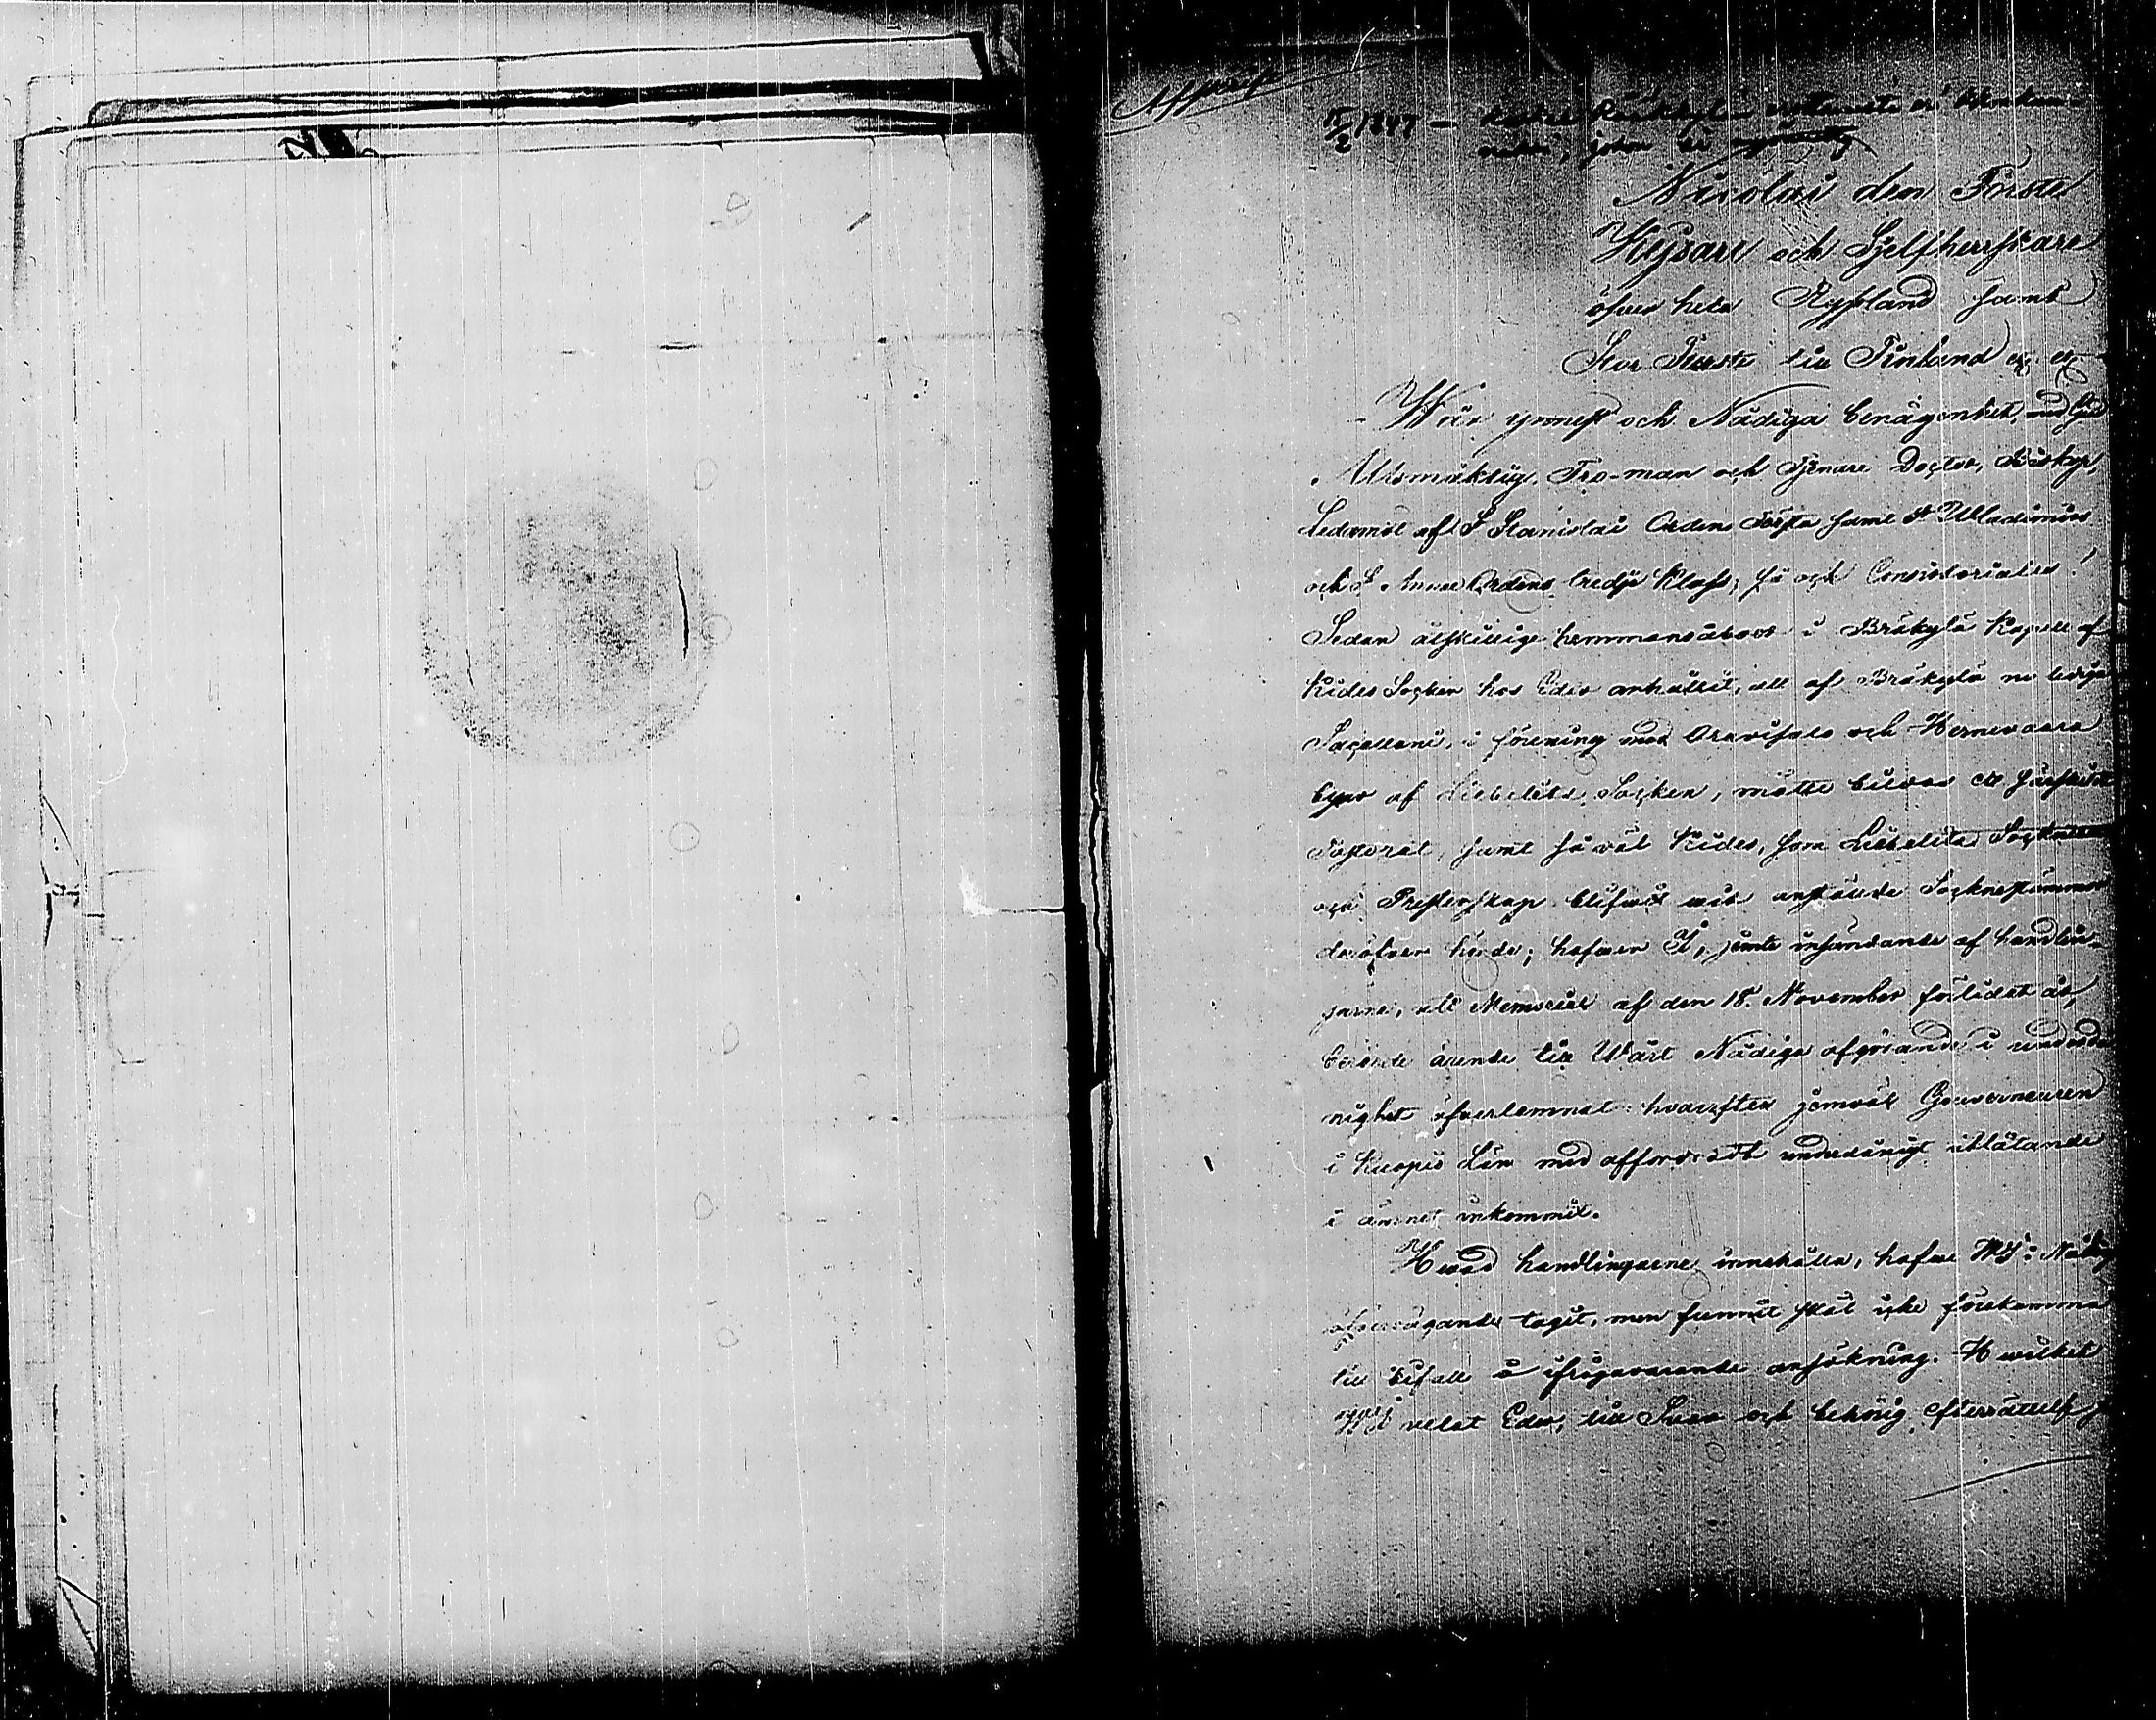 Afskrift
11/2 1847 — Koskee Rääkkylän erottamista eri kirkkoherra-
kunnaksi, johon ei
Nicolai den Förste
Kejsare och Sjelfherrskare
öfver hela Ryssland samt
Stor Furste till Finland etc etc
Wår ynnest och Nådiga benägenhet, med Gud
Allsmäktig, Tro-man och tjenare Doctor, Biskop,
Ledamot af S:t Stanislai Orden första samt S:t Wladimirs
och S:t Annæ Ordens tredje Klass, så ock Consistoriales!
Sedan åtskillige hemmansåboer i Bräkylä Kapell af
Kides Socken hos Eder anhållit, att af Bräkylä nu lediga
Sacellani, i förening med Oravisalo och Hernevaara
byar af Libelits Socken, måtte bildas ett särskildt
Pastorat, samt så väl Kides, som Libelits Sockneboer
och Presterskap blifvit vid anställde Socknestämmor
deröfver hörde; hafven I, jemte insändande af handlin-
garne, uti Memorial af den 18. November förlidet år,
berörde ärende till Wårt Nådiga afgörande i underdå-
nighet öfverlemnat: hvarefter jemväl Gouverneuren
i Kuopio Län med affordradt underdånigt utlåtande
i ämnet inkommit.
Hwad handlingarne innehålla, hafve Wi i Nådigt
öfvervägande tagit, men funnit skäl icke förekomma
till bifall å ifrågavarande ansökning. Hwilket
Wi velat Eder, till Svar och behörig efterrättelse